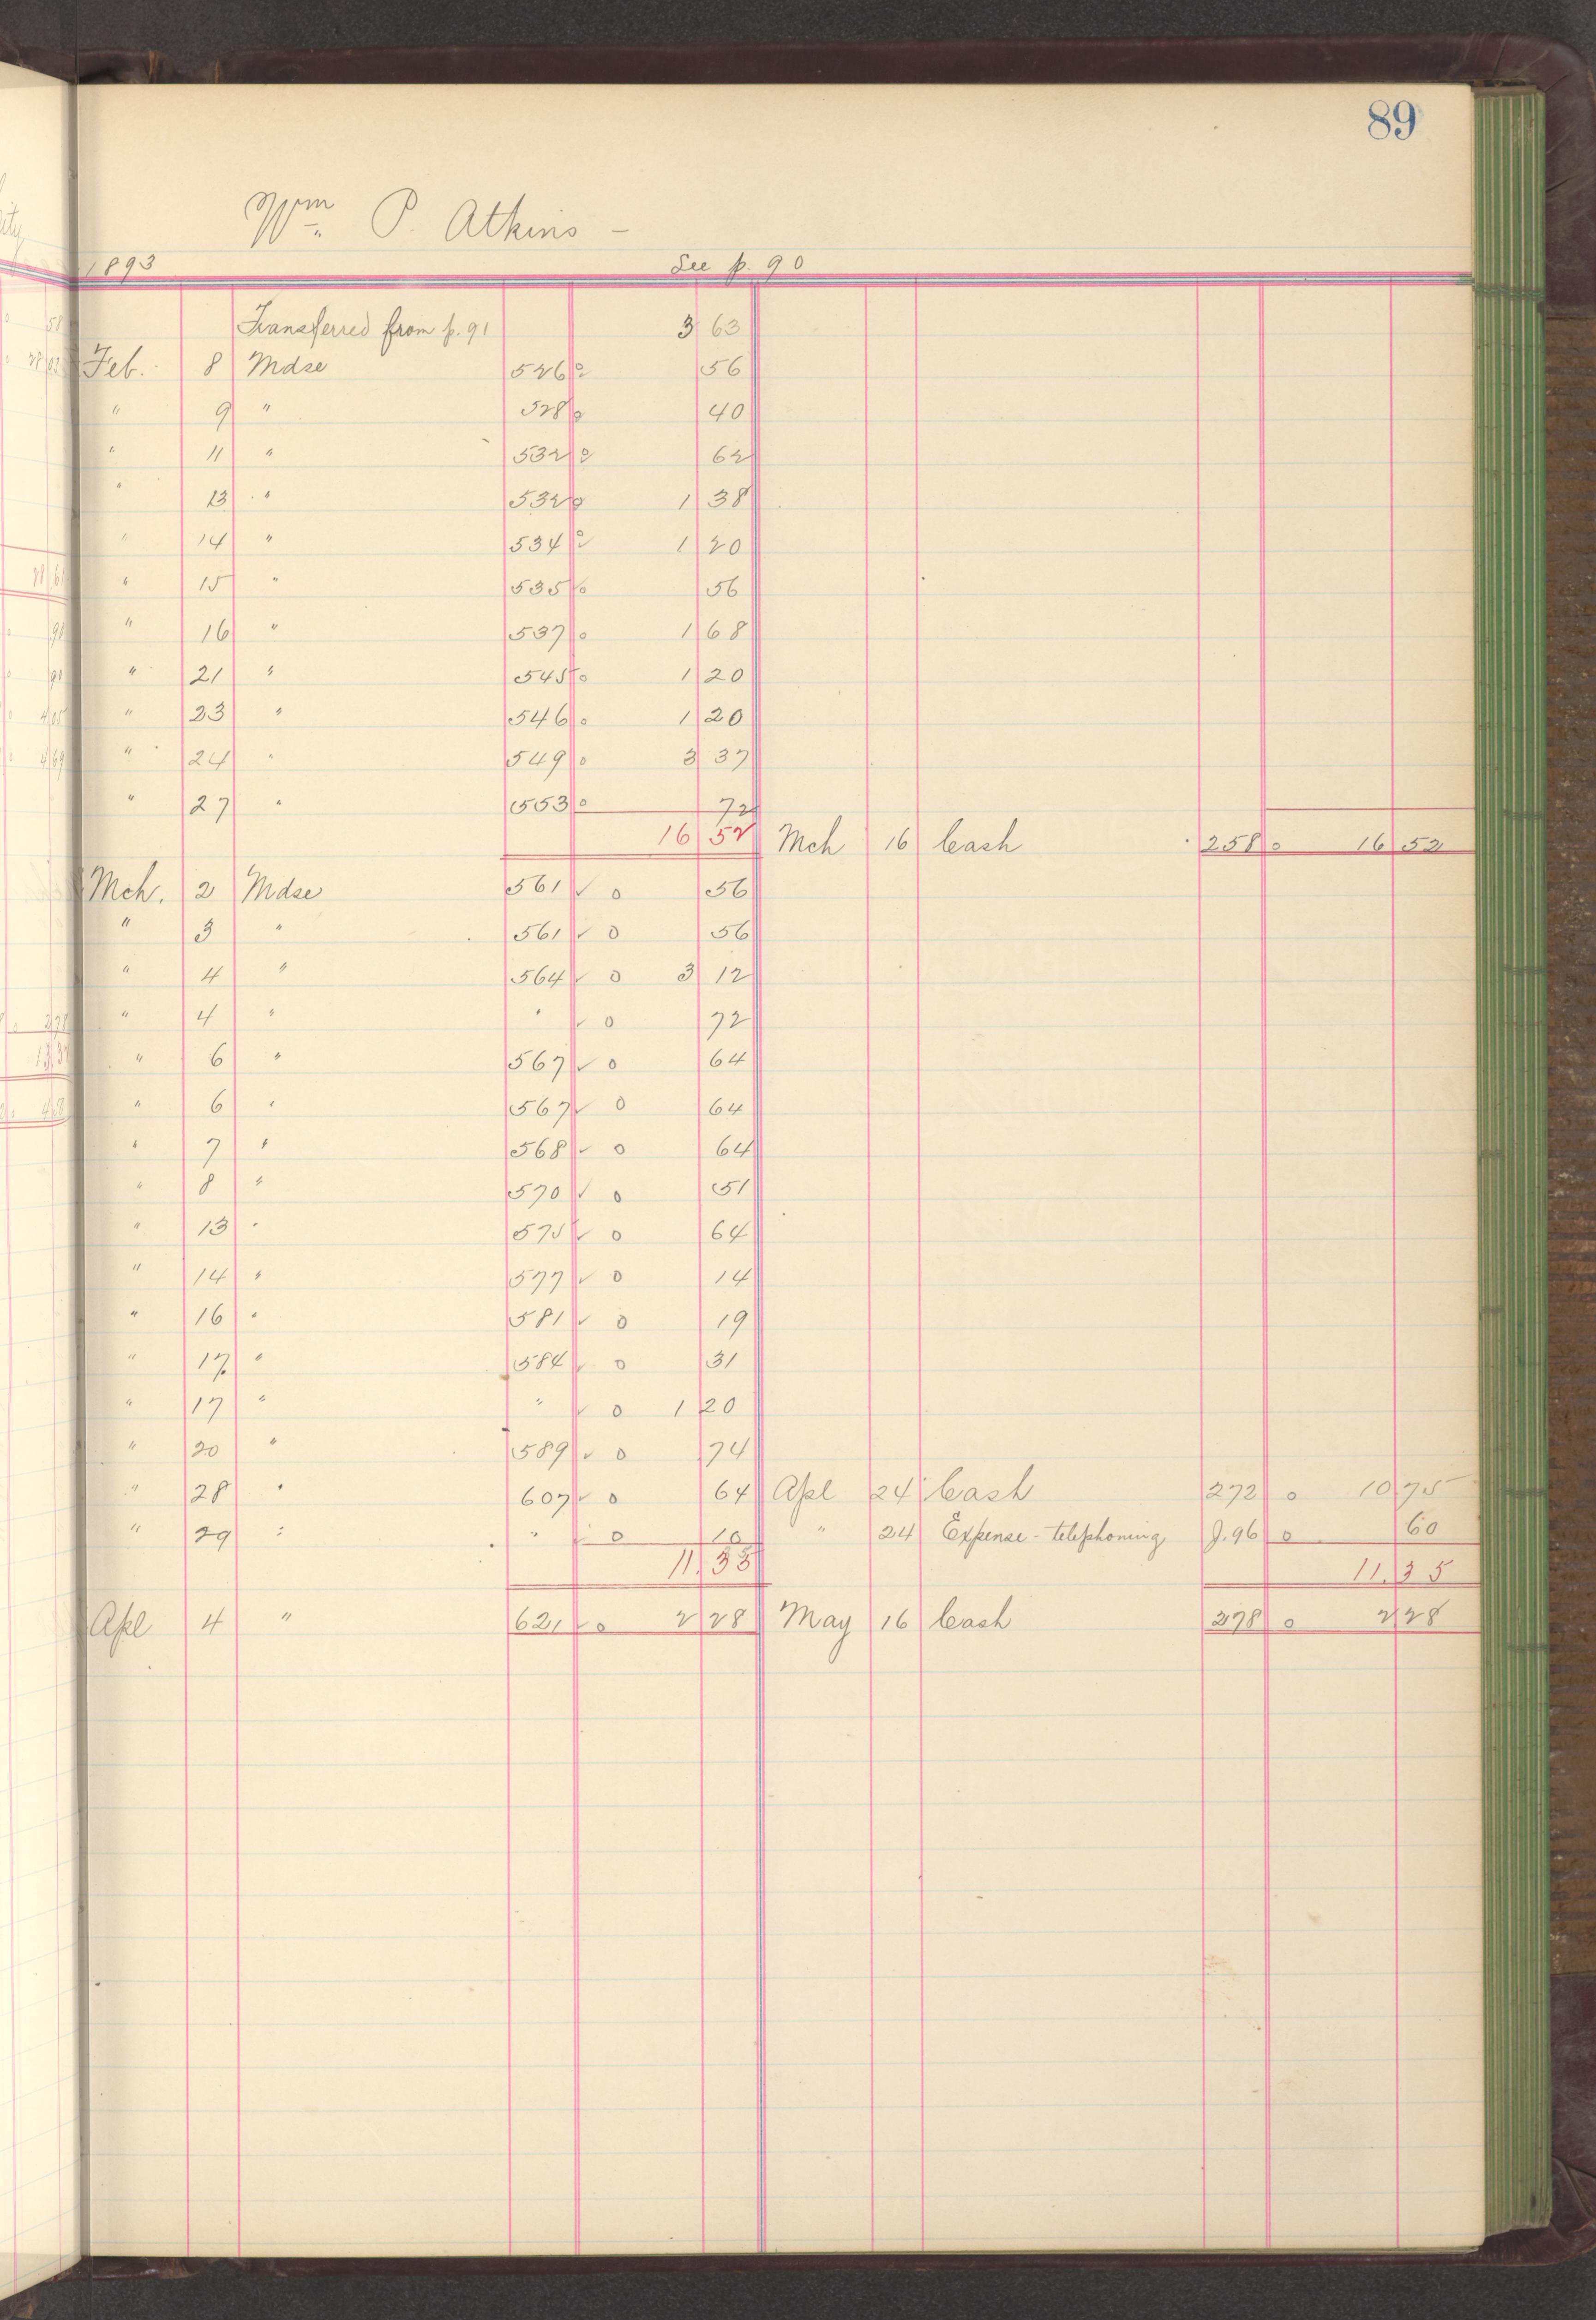 89
Wm. P. Atkins -
1893 See p. 90
Transferred from p. 91 3 63
Feb. 8 Mdse 526 o 56
" 9 " 528 o 40
" 11 " 532 o 62
" 13 " 532 o 1 38
" 14 " 534 o 1 20
" 15 " 535 o 56
" 16 " 537 o 1 68
" 21 " 545 o 1 20
" 23 " 546 o 1 20
" 24 " 549 o 3 37
" 27 " 553 o 72
16 52 Mch 16 Cash 258 o 16 52
Mch. 2 Mdse 561 ✓ o 56
" 3 " 561 ✓ o 56
" 4 " 564 ✓ o 3 12
" 4 " " ✓ o 72
" 6 " 567 ✓ o 64
" 6 " 567 ✓ o 64
" 7 " 568 ✓ o 64
" 8 " 570 ✓ o 51
" 13 " 575 ✓ o 64
" 14 " 577 ✓ o 14
" 16 " 581 ✓ o 19
" 17 " 584 ✓ o 31
" 17 " " ✓ o 1 20
" 20 " 589 ✓ o 74
" 28 " 607 ✓ o 64 Apl 24 Cash 272 o 10 75
" 29 " " ✓ o 10 " 24 Expense - telephoning J. 96 o 60
11.35 11.35
Apl 4 " 621 ✓ o 2 28 May 16 Cash 278 o 2 28